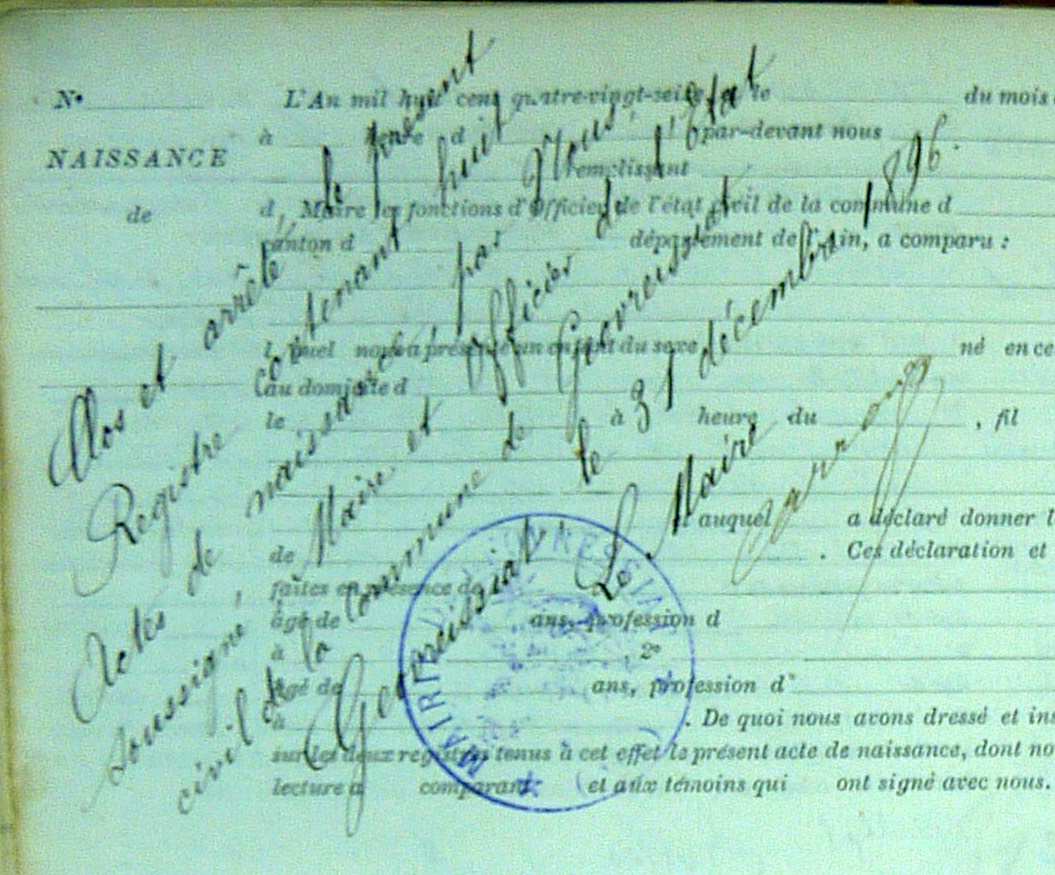 N°
L'An mil huit cent quatre-vingt-seize, le du mois
à heure d par-devant nous
NAISSANCE
remplissant
de
d Maire les fonctions d'Officier de l'état civil de la commune d
canton d département de l'Ain, a comparu :
lequel nous a présenté un enfant du sexe né en ce
au domicile d
le à heure du , fil
et auquel a déclaré donner l
de . Ces déclaration et
faites en présence de
âgé de ans, profession d
à , 2°
âgé de ans, profession d
à . De quoi nous avons dressé et ins
sur les deux registres tenus à cet effet le présent acte de naissance, dont no
lecture a comparant et aux témoins qui ont signé avec nous.
Clos et arrêté, le présent
Registre contenant huit
Actes de naissance par Nous
soussigné, Maire et Officier de l'Etat
civil de la Commune de Geovreissiat
Geovreissiat le 31 décembre 1896.
Le Maire
MAIRIE GEOVREISSIAT